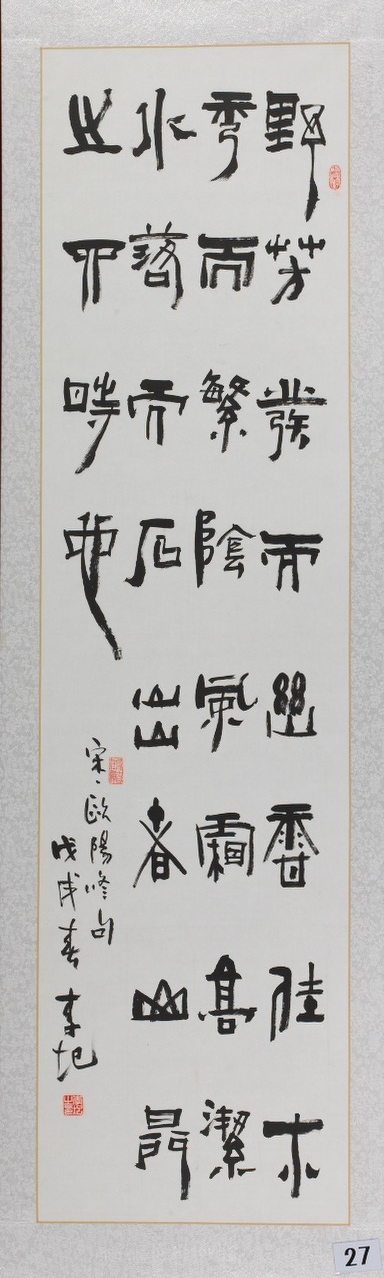 野芳發而幽香佳木
秀而繁陰風霜高潔
水落而石出者山間
之四時也
宋、歐陽修句
戊戌春
27